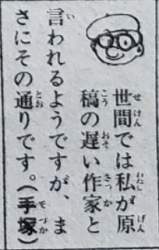 世間では私が原
稿の遅い作家と
言われるようですが、ま
さにその通りです。(手塚)